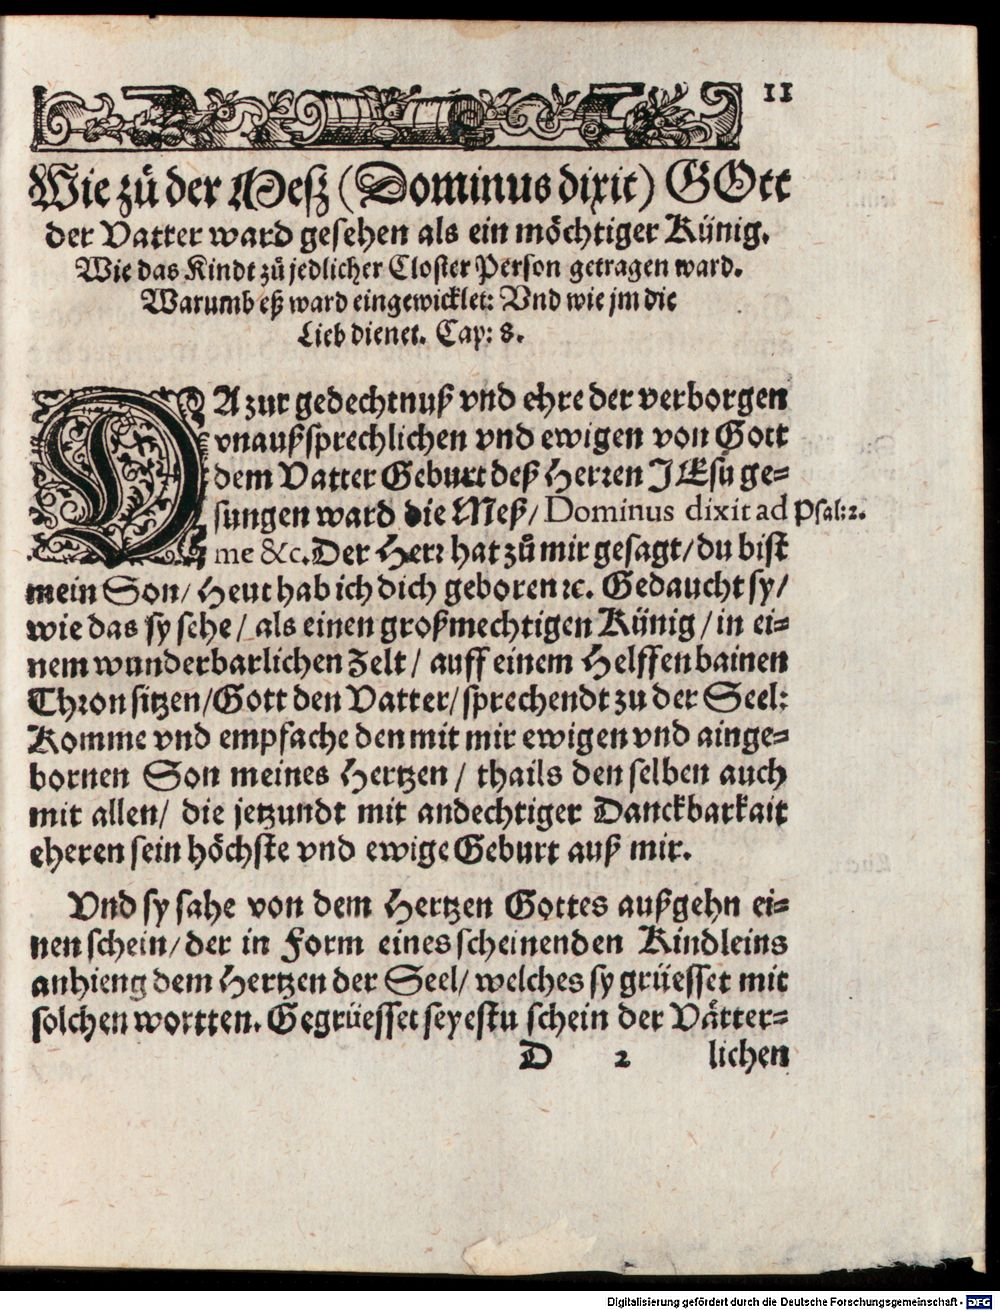 11
Wie zů der Mesz (Dominus dixit) GOtt
der Vatter ward gesehen als ein möchtiger Künig.
Wie das Kindt zů jedlicher Closter Person getragen ward.
Warumb eß ward eingewicklet: Vnd wie jm die
Lieb dienet. Cap: 8.
DA zur gedechtnuß vnd ehre der verborgen
vnaußsprechlichen vnd ewigen von Gott
dem Vatter Geburt deß Herren JEsu ge=
sungen ward die Meß/ Dominus dixit ad Psal: 2.
me &c. Der Herr hat zů mir gesagt/ du bist
mein Son/ Heut hab ich dich geboren ꝛc. Gedaucht sy/
wie das sy sehe/ als einen großmechtigen Künig/ in ei=
nem wunderbarlichen Zelt/ auff einem Helffenbainen
Thron sitzen/ Gott den Vatter/ sprechendt zu der Seel:
Komme vnd empfache den mit mir ewigen vnd ainge=
bornen Son meines Hertzen/ thails den selben auch
mit allen/ die jetzundt mit andechtiger Danckbarkait
eheren sein höchste vnd ewige Geburt auß mir.
Vnd sy sahe von dem Hertzen Gottes außgehn ei=
nen schein/ der in Form eines scheinenden Kindleins
anhieng dem Hertzen der Seel/ welches sy grüesset mit
solchen wortten. Gegrüesset seyestu schein der Vätter=
D 2 lichen
Digitalisierung gefördert durch die Deutsche Forschungsgemeinschaft - DFG